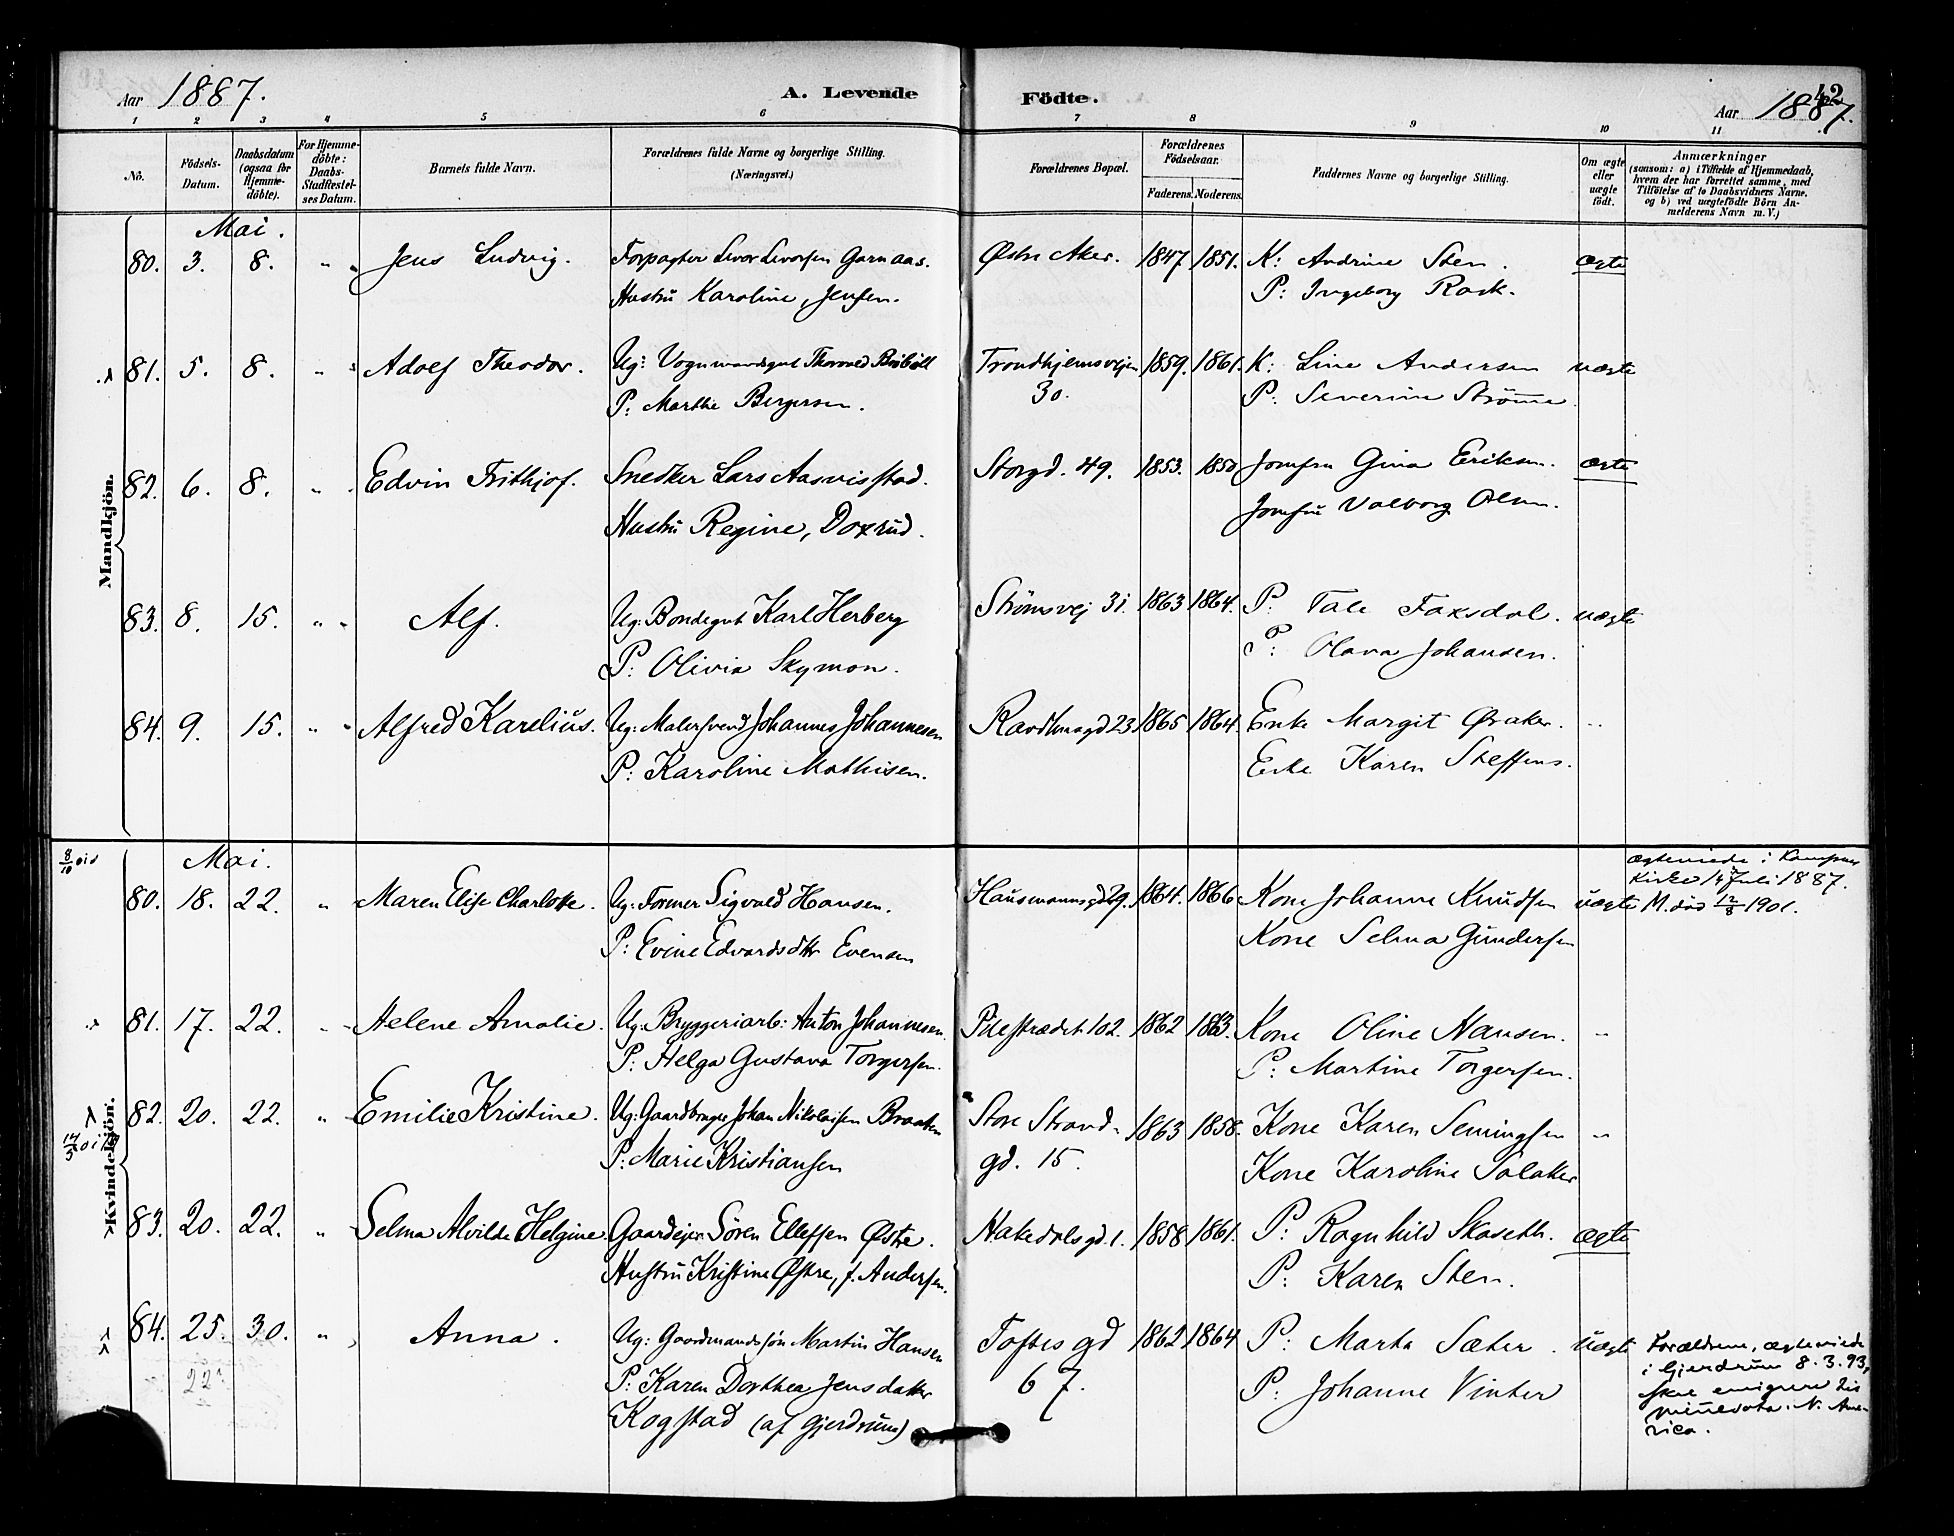 Aar 1887.
A. Levende Födte.
42
Aar 1887.
1 2 3 4 5 6 7 8 9 10 11
No.
Födsels-Datum.
Daabsdatum (ogsaa for Hjemme-döbte).
For Hjemme-döbte: Daabs-Stadfæstel-ses Datum.
Barnets fulde Navn.
Forældrenes fulde Navne og borgerlige Stilling.
(Næringsvei.)
Forældrenes Bopæl.
Forældrenes Födselsaar.
Faderens. Moderens.
Faddernes Navne og borgerlige Stilling.
Om ægte eller uægte födt.
Anmærkninger
(saasom: a) i Tilfælde af Hjemmedaab,
hvem der har forrettet samme, med
Tilföielse af to Daabsvidners Navne,
og b) ved uægtefödte Börn An-
melderens Navn m. V.)
Mandkjön.
Mai.
80. 3. 8. " " Jens Ludvig. Forpagter Levor Levorsen Garnaas. Østre Aker. 1847 1851. K: Andrine Sten. ægte
Hustru Karoline, Jensen. P: Ingeborg Rask.
81. 5. 8. " " Adolf Theodor. Ug: Vognmandsgut Thorvald Trondhjemsvejen 1859. 1861. K: Line Andersen uægte
P: Marthe Bergersen. 30. P: Severine Strömme
82. 6. 8. " " Edvin Frithjof. Snedker Lars Aasvisstad. Storgd. 49. 1853. Jomfru Gina Eriksen. ægte
Hustru Regine, Doxrud. Jomfru Valborg Olsen.
83. 8. 15. " " Alf. Ug: Bondegut Karl Herberg Strömsvej 31. 1863 1864. P: Tale Faxsdal. uægte
P: Olivia Skymon. P: Olava Johansen.
84. 9. 15. " " Alfred Karelius. Ug: Malersvend Johannes Johannesen 23 1865 1864. Enke Margit Øraker. "
P: Karoline Mathisen. Enke Karen Steffens.
Kvindekjön.
Mai.
ægteviede i Kampens
Kirke 14 Juli 1887.
80. 18. 22. " Maren Elise Charlotte. Ug: Former Sigvald Hansen. Hausmannsgd 29. 1864. 1866 Kone Johanne Knudsen uægte M. död 12/8 1901.
P: Evine Edvardsdtr Evensen Kone Selma Gundersen
81. 17. 22. " Helene Amalie. Ug: Bryggeriarb: Anton Johannesen. Pilestrædet 102. 1862 1863. Kone Oline Hansen. "
P: Helga Gustava Torgersen. P: Martine Torgersen.
82. 20. 22. " Emilie Kristine. Ug: Gaardbruger Johan Nikolaisen Braaten Store Strand- 1863 1858. Kone Karen Semingsen "
P: Marie Kristiansen gd. 15. Kone Karoline Solaker
83. 20. 22. " Selma Alvilde Helgine. Gaardejer Sören Ellefsen Østre. Hakedalsgd. 1. 1858 1861. P: Ragnhild Skaseth. ægte
Hustru Kristine Østre, f. Andersen. P: Karen Sten.
84. 25. 30. " Anna. Ug: Gaardmandssön Martin Hansen Toftes gd 1862 1864 P: Marta Sæter. uægte Forældrene, ægteviede
22 P: Karen Dorthea Jensdatter 67. P: Johanne Vinter i Gjerdrum 8.3.93,
Kogstad (af Gjerdrum) skal emigrere til
Minnesota. N. Ame-
rica.